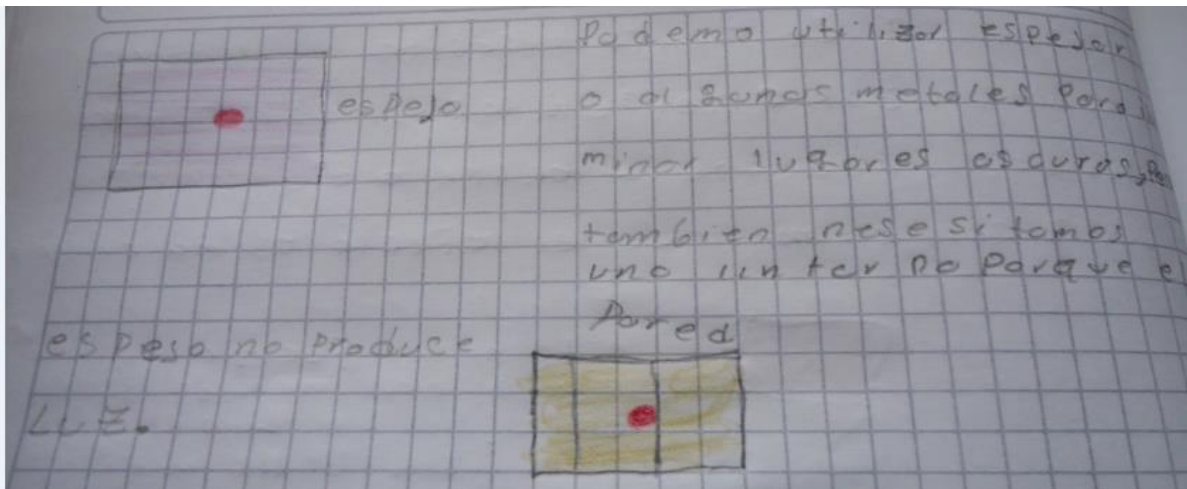 espejo
Podemo utilizar espejor
o algunos metales Para
minar lugares oscuros,
tambien nesesitamos
una linterna Porque el
espeso no produce
Luz.
Pared